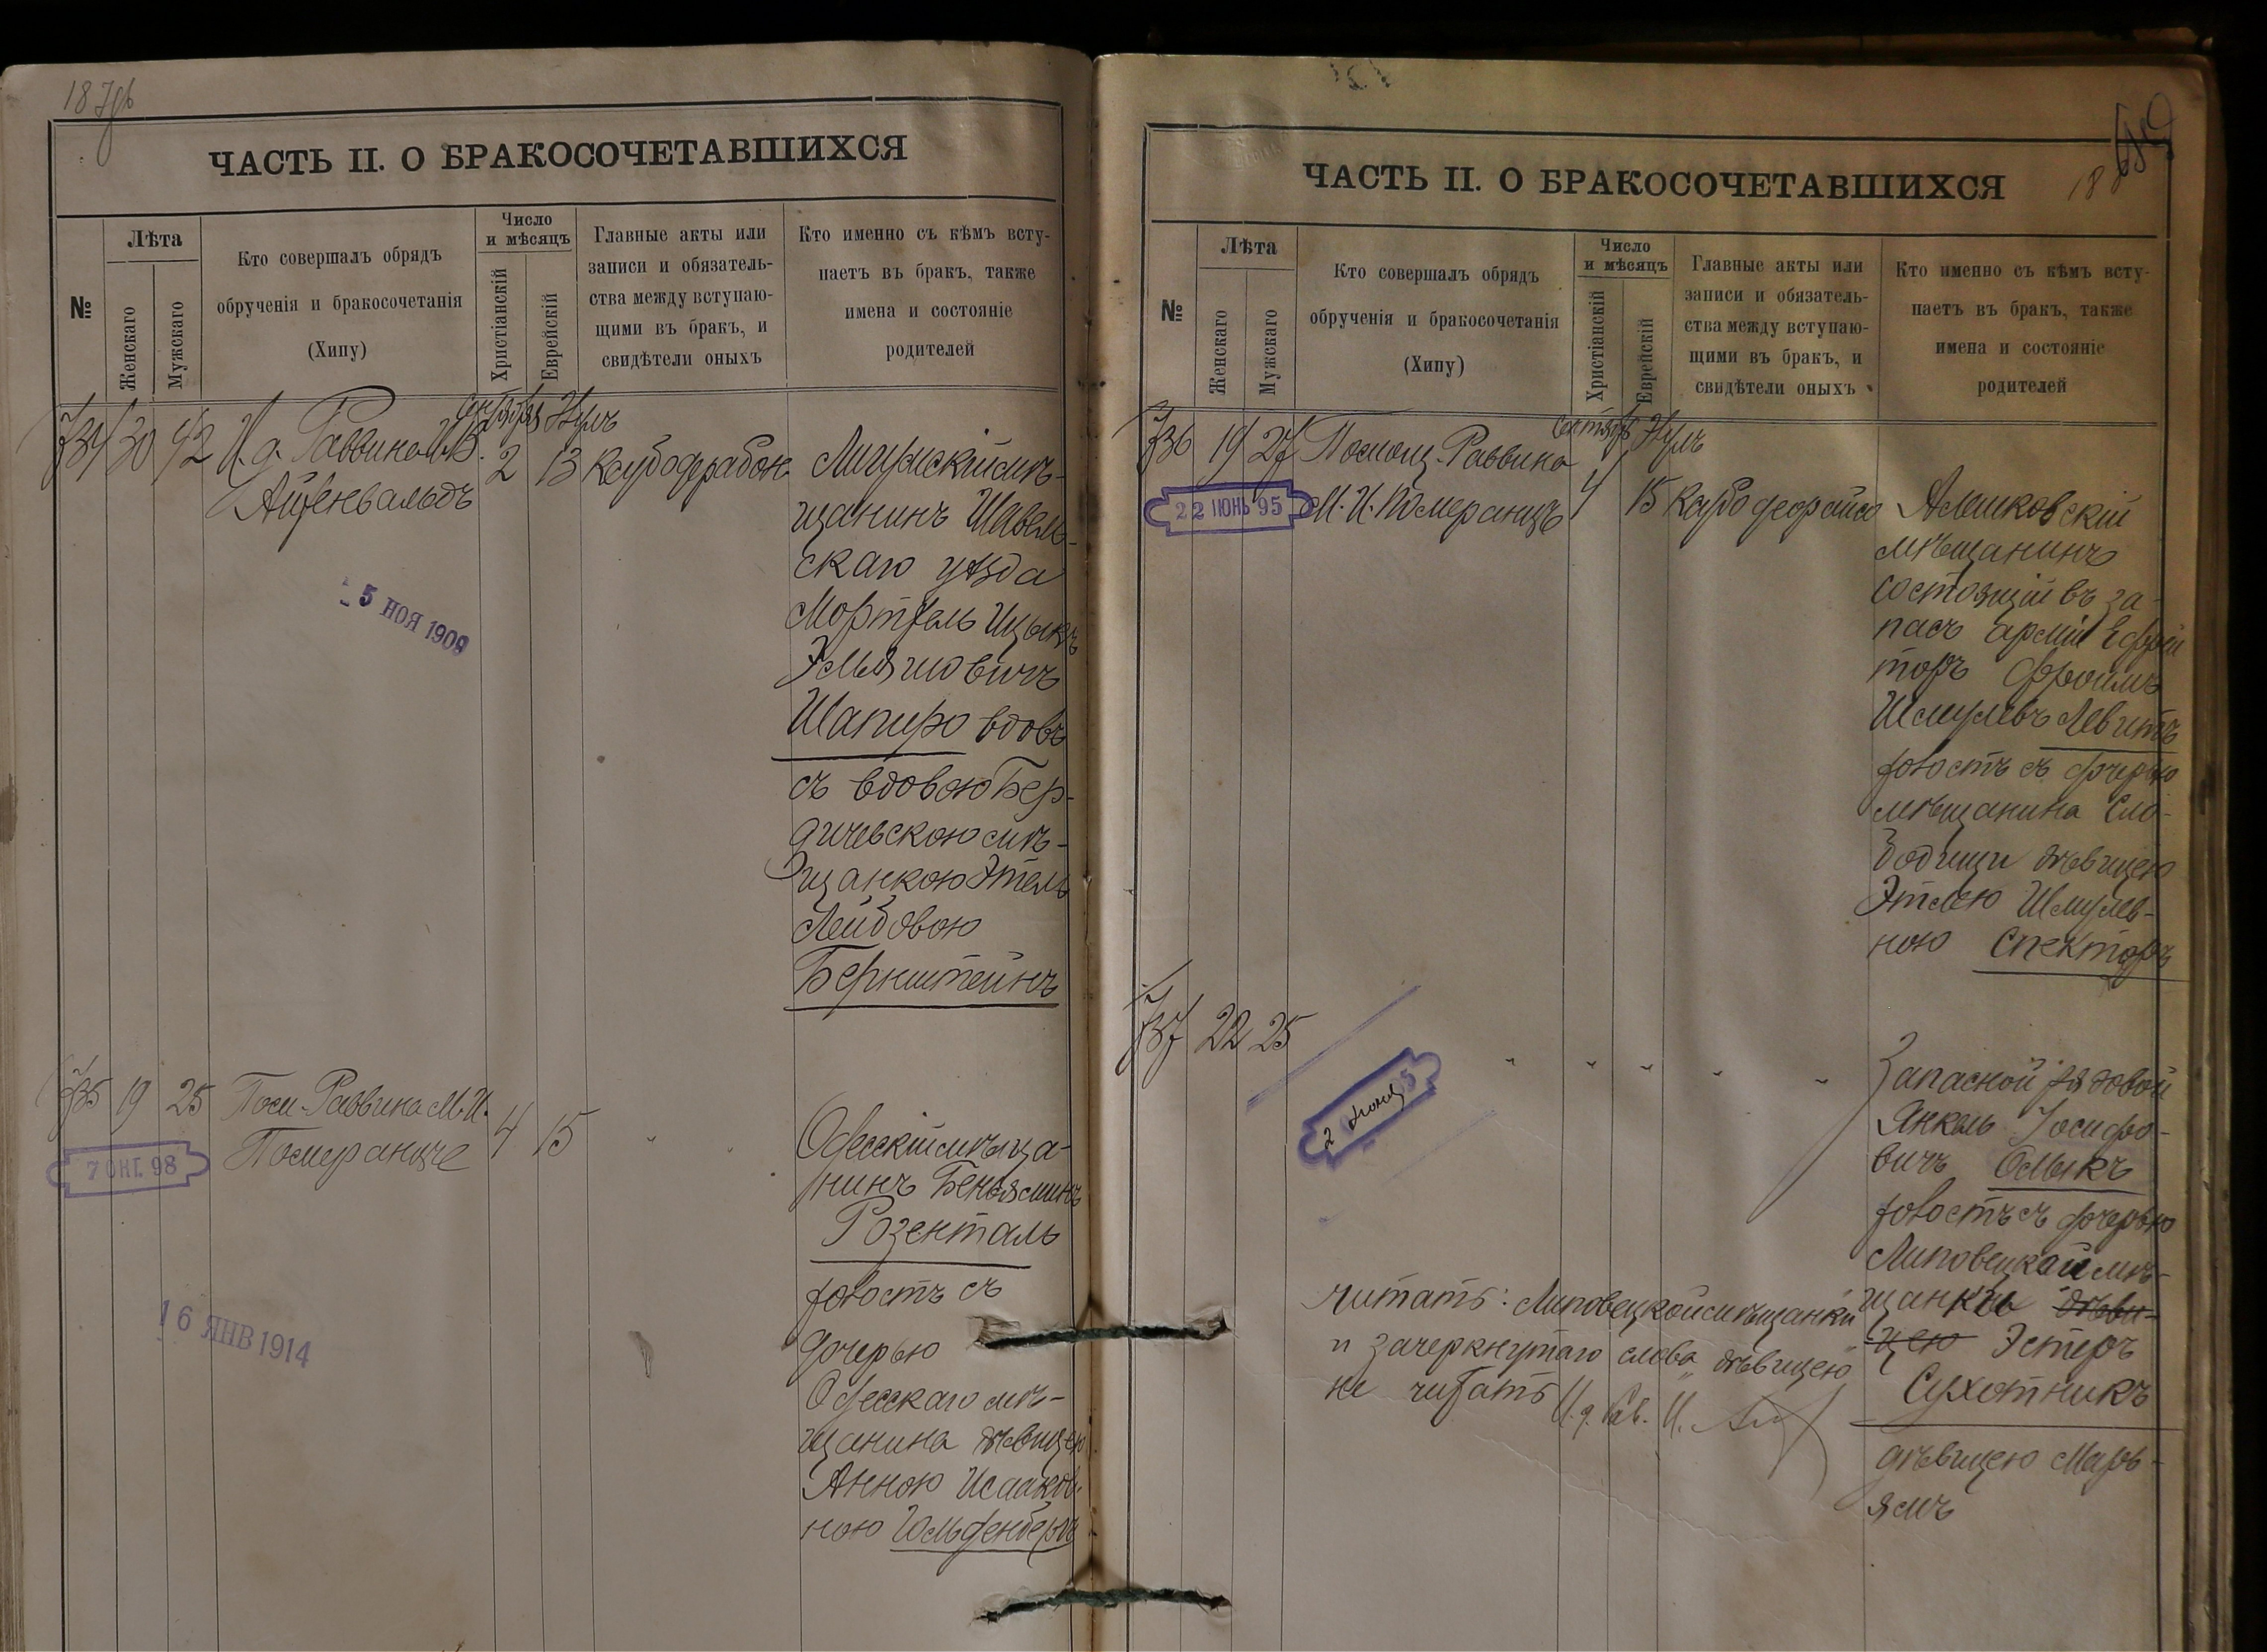 ЧАСТЬ II. О БРАКОСОЧЕТАВШИХСЯ
№
Лѣта
Женскаго
Мужскаго
Кто совершалъ обрядъ
обрученія и бракосочетанія
(Хипу)
Число
и мѣсяцъ
Христіанскій
Еврейскій
Главные акты или
записи и обязатель-
ства между вступаю-
щими въ бракъ, и
свидѣтели оныхъ
Кто именно съ кѣмъ всту-
паетъ въ бракъ, также
имена и состояніе
родителей
734 30 42 И. д. Раввина
Айзенвальдъ
Сентября
2 13
5 НОЯ 1909
мѣ-
щанинъ Шавель-
скаго уѣзда
Ицыкъ
Шапиро вдовъ
съ вдовою Бер-
дичевскою мѣ-
щанкою Этель
Лейбовою
Бернштейнъ
735 19 25 Пом. Раввина М. И.
Померанцъ
4 15
7 ОКТ. 98
16 ЯНВ 1914
Одесскій мѣща-
нинъ Беньяминъ
Розенталь
холостъ съ
дочерью
Одесскаго мѣ-
щанина дѣвицею
Анною Исааков-
ною Гольденбергъ
ЧАСТЬ II. О БРАКОСОЧЕТАВШИХСЯ
№
Лѣта
Женскаго
Мужскаго
Кто совершалъ обрядъ
обрученія и бракосочетанія
(Хипу)
Число
и мѣсяцъ
Христіанскій
Еврейскій
Главные акты или
записи и обязатель-
ства между вступаю-
щими въ бракъ, и
свидѣтели оныхъ
Кто именно съ кѣмъ всту-
паетъ въ бракъ, также
имена и состояніе
родителей
736 19 27 Помощ. Раввина
М. И. Померанцъ
4 15
22 ІЮНЬ 95
Алешковскій
мѣщанинъ
состоящій въ за-
пасѣ арміи Ефрей
торъ Фроимъ
Шмулевъ Левитъ
холостъ съ дочерью
мѣщанина Сло-
бодищи дѣвицею
Этлею Шмулев-
ною Спекторъ
737 22 25
Запасной рядовой
Янкель Іосифо-
вичъ Олыкъ
холостъ съ дочерью
Липовецкой мѣ-
щанки дѣви-
цею Эстеръ
Сухотникъ
дѣвицею Марь-
ямъ
Читать: Липовецкой мѣщанки
и зачеркнутаго слова "дѣвицею"
не читать И. д. Рав. И.